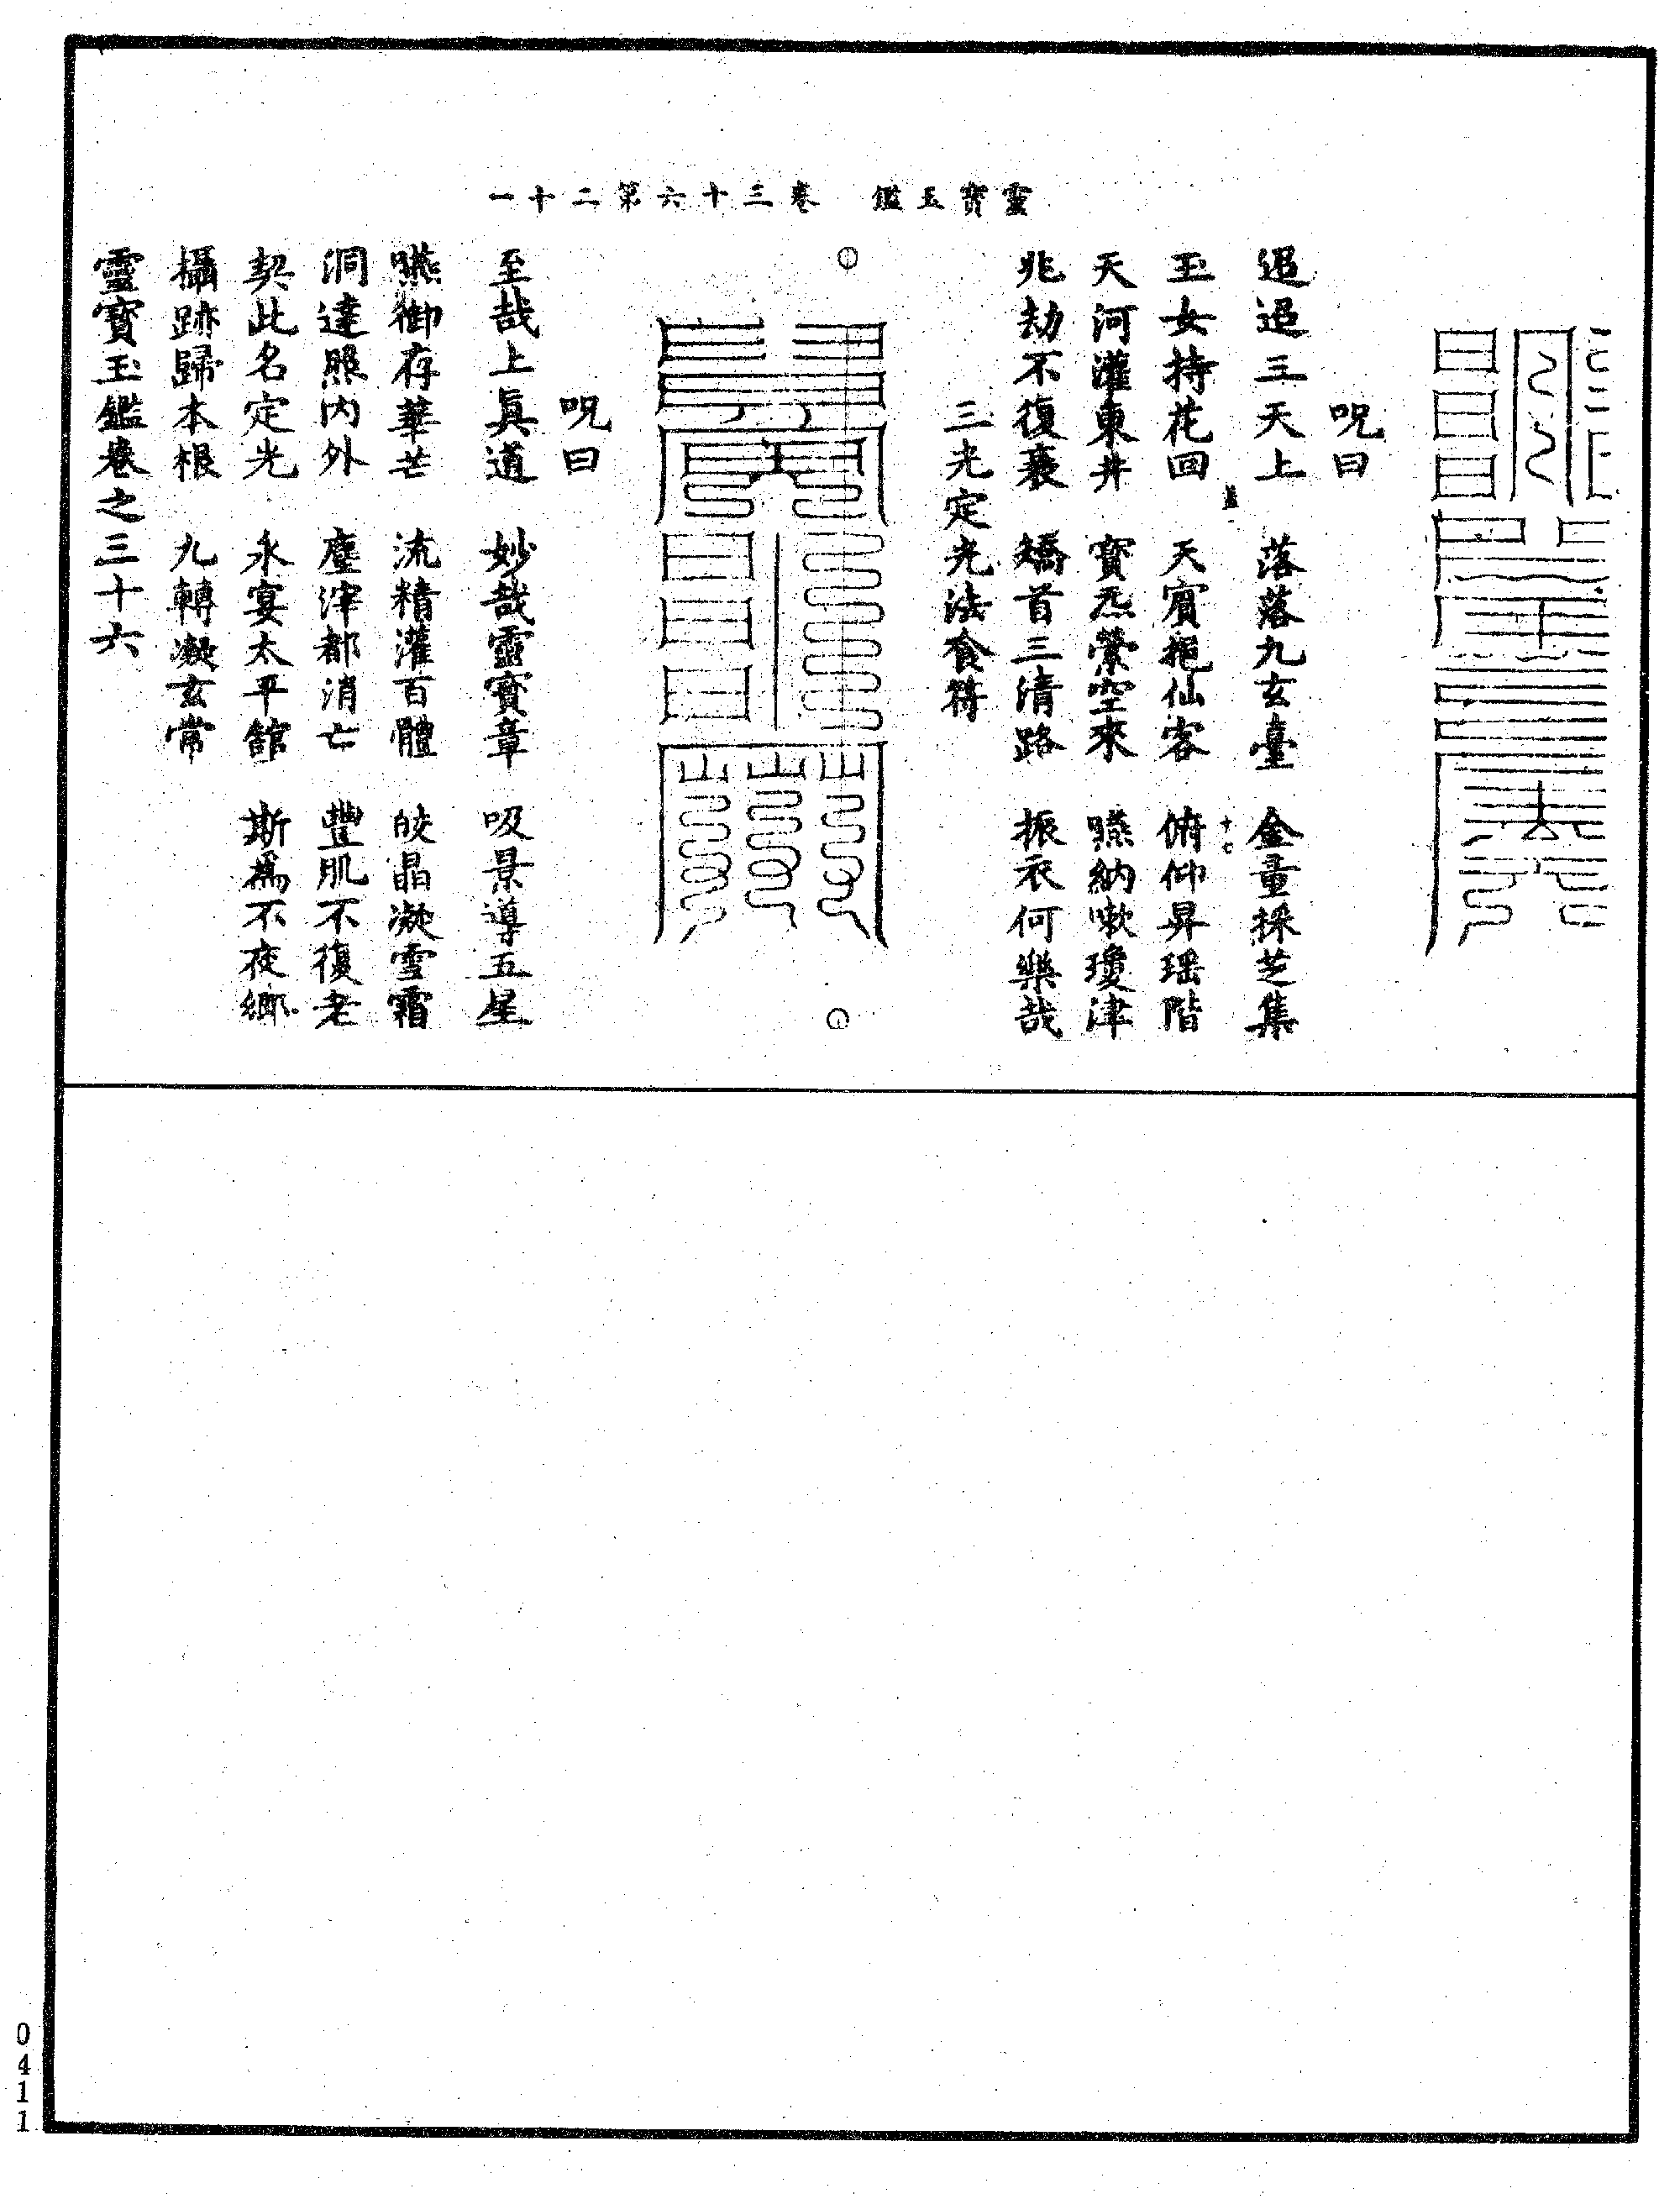 靈寶玉鑑　卷三十六第二十一
呪曰
迢迢三天上　落落九玄臺　金童採芝集
玉女持花回　天賓拖仙客　俯仰昇瑶階
天河灌東井　寶炁縈空來　嚥納嗽瓊津
兆劫不復衰　矯首三清路　振衣何樂哉
三光定光法食符
呪曰
至哉上眞道　妙哉靈寶章　吸景導五星
嚥御存華芒　流精灌百體　皎晶凝雪霜
洞達照内外　塵滓都消亡　豐肌不復老
契此名定光　永宴太平館　斯爲不夜鄉
攝跡歸本根　九轉凝玄常
靈寶玉鑑卷之三十六
0411